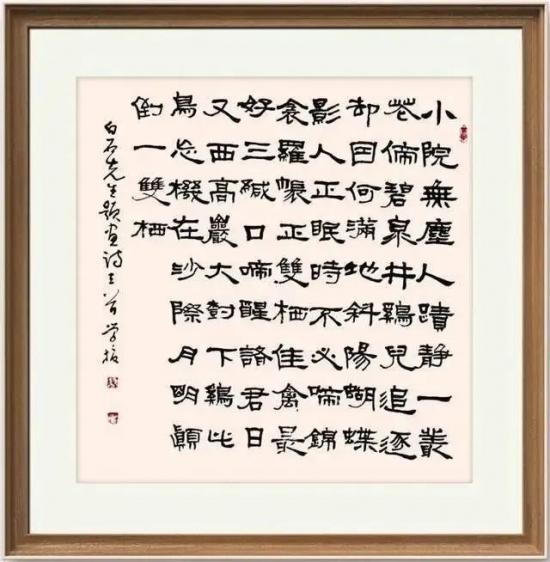 小院無塵人蹟静一叢
花傍碧泉井鷄兒追逐
却因何滿地斜陽蝴蝶
影人正眠時不必啼錦
衾羅帳正雙栖佳禽最
好三緘口啼醒諸君日
又西高巖大對下鷄比
鳥忘機在沙際月明顛
倒一雙栖
白石先生題畫詩三首學